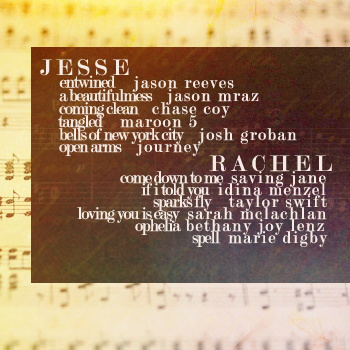 JESSE
entwined jason reeves
a beautifulmess jason mraz
coming clean chase coy
tangled maroon 5
bells of new york city josh groban
open arms journey
RACHEL
come down to me saving jane
if i told you idina menzel
sparks fly taylor swift
loving you is easy sarah mclachlan
ophelia bethany joy lenz
spell marie digby